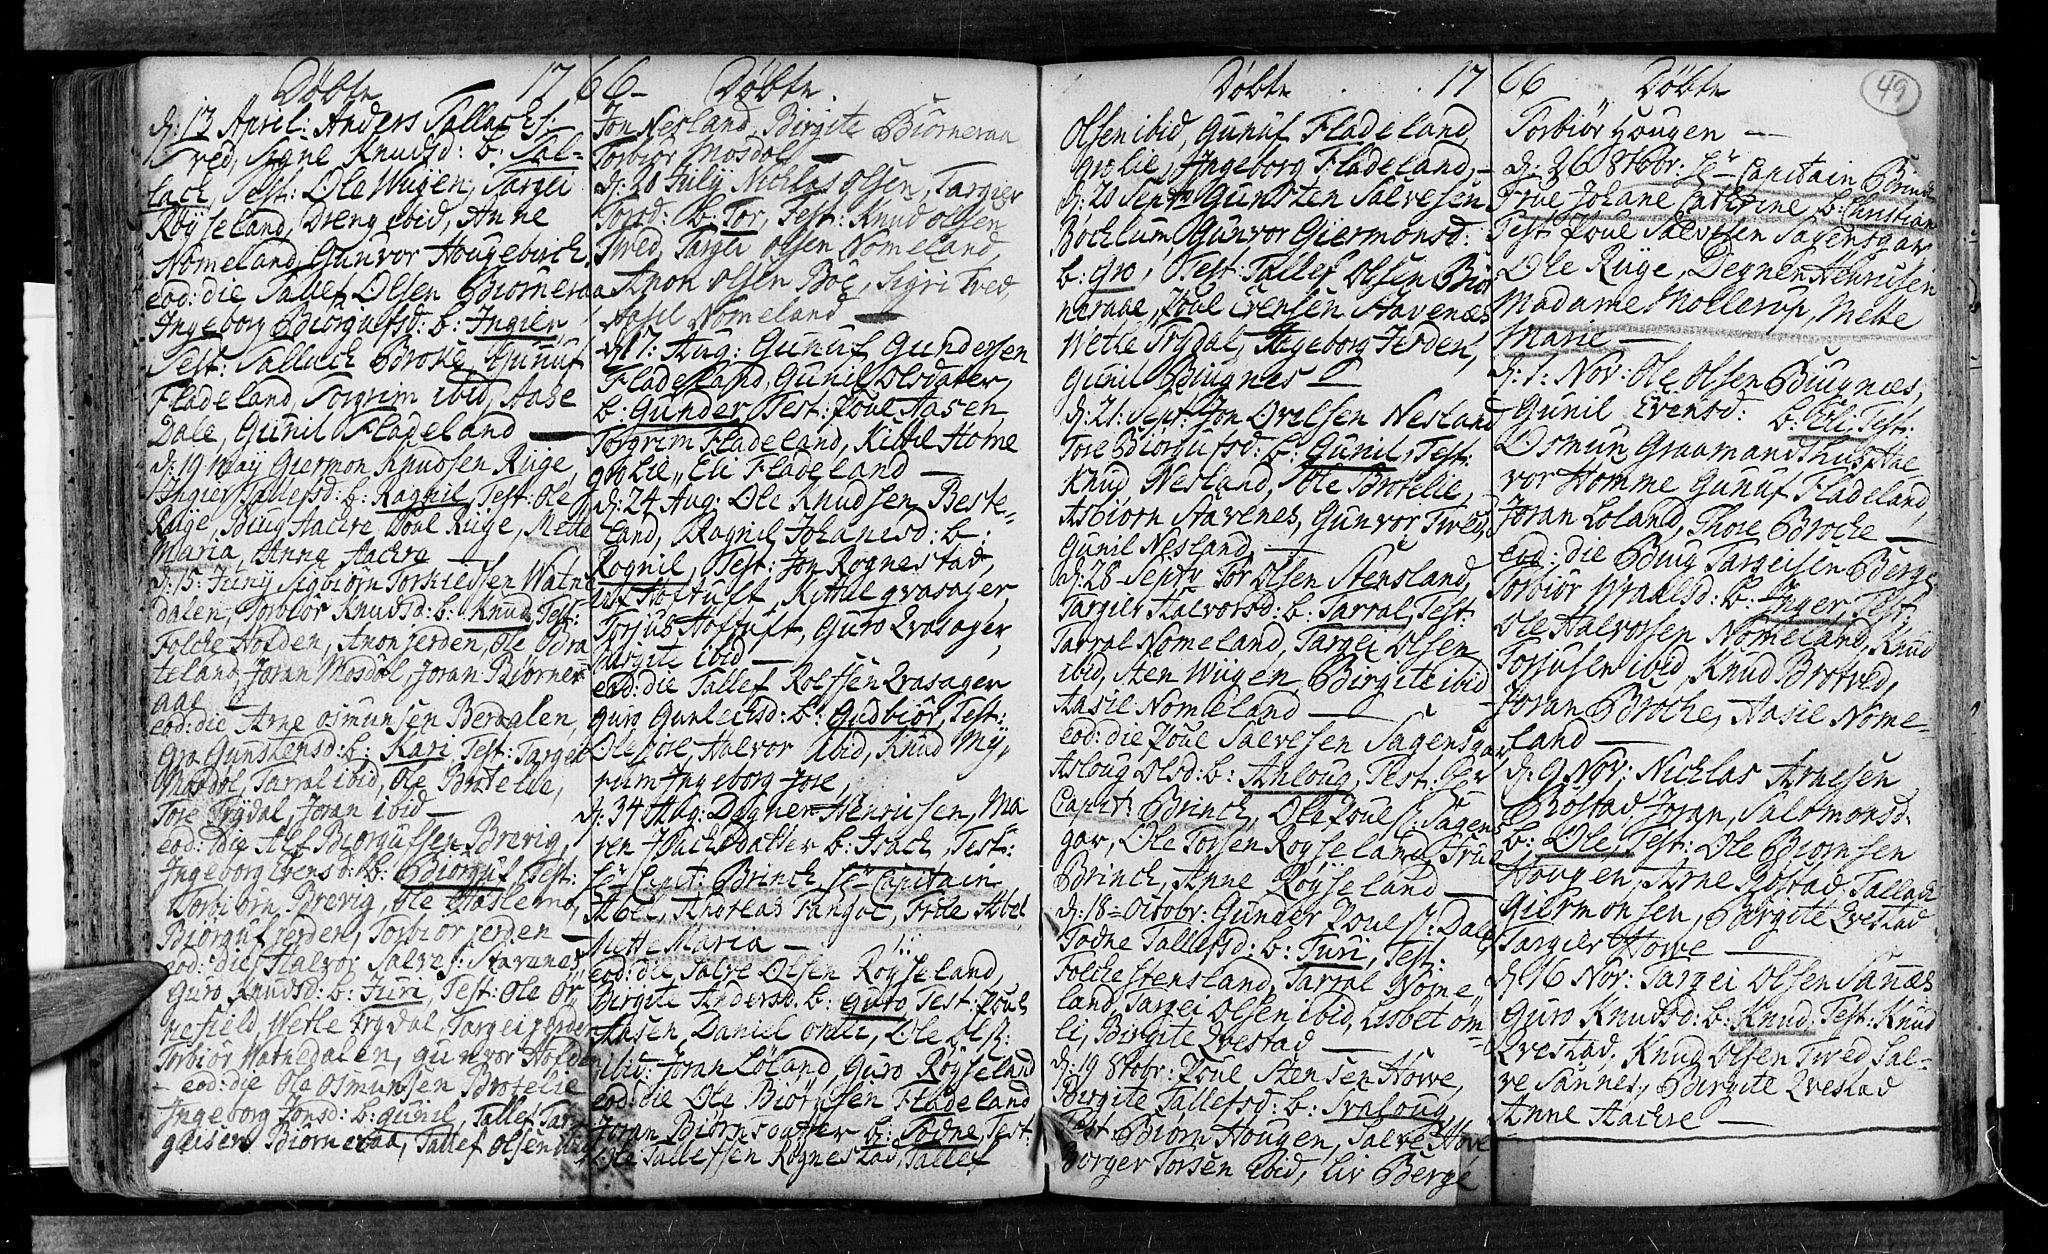 Døbte 1766 Døbte
d: 13 April: Anders Tallachs:
Tved, Signe Knudsd: b: Tal-
lach, Test: Ole Wiigen, Targei
Røÿseland, Dreng ibid, Anne
Nomeland, Gunvor Hougebirch
eod: die Tallef Olsen Biorneraa
Ingeborg Biorgufsd: b: Ingier
Test: Tallach Broke, Gunuf
Fladeland, Torgrim ibid, Aase
Dale, Gunil Fladeland
d: 19 Maÿ Giermon Knudsen Rige
Ingier Tallefsd: b: Ragnil, Test: Ole
Rige, Biug Aachre, Poul Rige, Mette
Maria, Anne Aachre
d: 15: Junÿ Sigbiørn Torkielsen Watne
dalen, Torbior Knudsd: b: Knud, Test:
Folche Holden, Anon Jerden, Ole Bra-
teland, Joran Mosdøl, Joran Biørner-
aae
eod: die Arne Osmunsen Berdalen,
Gro Gunstensd: b: Kari Test: Targei
Mosdøl, Tarral ibid, Ole Brotelie,
Tore Trÿdal, Joran ibid
eod: die Alf Biorgufsen Brevig,
Ingeborg Evensd: b: Biorguf Test:
Torbiørn Brevig, Ole Haslemo,
Biorguf Jerden, Torbior Jerden
eod: die Halvor Salves: Stavenes
Guro Knudsd: b: Turi, Test: Ole Ør-
nefield, Wetle Trÿdal, Targei Jerden
Torbior Watnedalen, Gunvor Holden
eod: die Ole Osmunsen Brotelie
Ingeborg Jonsd: b: Gunil, Tallef Tar-
geisen Biorneraa, Tallef Olsen ibid
Jon Nesland, Birgite Biorneraa
Torbior Mosdøl
d: 20 Julÿ Nicklas Olsen, Targier
Torsd: b: Tor, Test: Knud Olsen
Tved, Targei Olsen Nomeland,
Anon Olsen Boe, Sigri Tved,
Aasil Nomeland
d: 17: Aug: Gunuf Gundersen
Fladeland, Gunil Olsdater,
b: Gunder, Test: Poul Aasen
Torgrim Fladeland, Kittil Home
Grolie, Eli Fladeland
d: 24 Aug: Ole Knudsen Beste-
land, Ragnil Johanisd: b:
Rognil, Test: Jon Rognestad,
Alf Hoftuft, Kittil Qvasager,
Torjus Hoftuft, Guro Qvasager,
Birgite ibid
eod: die Tallef Rolfsen Qvasager
Guro Gunleichsd: b: Gudbior, Test:
Ole Jore, Halvor ibid, Knud Mÿ-
rum Ingeborg Jore,
d: 34 Aug: Degnen Henrisen, Ma-
ren Isachsdatter b: Isach, Test:
Hr Capit: Brinch, Hr Capitain
Abel, Andreas Fangoe, Frue Abel
Mette Maria
eod: die Salve Olsen Røÿseland,
Birgite Andersd: b: Guro Test: Poul
Aasen, Daniel Omli, Ole Ols:
ibid, Joran Løland, Guro Røÿseland
eod: die Ole Biørnsen Fladeland
Joran Biørnsdatter b: Todne Test:
Ole Tallefsen Rognestad, Tallef
Døbte 1766 Døbte 49
Olsen ibid, Gunuf Fladeland,
Grolie, Ingeborg Fladeland,
d: 20 Sept: Gunsten Salvesen
Bochlum, Gunvor Giermonsd:
b: Gro, Test: Tallef Olsen Bior-
neraae, Poul Evensen Stavenes
Wetle Trydal, Ingeborg Jerden,
Gunil Biugnes
d: 21: Sept: Jon Orelsen Nesland
Tore Biorgufsd: b: Gunil, Test:
Knud Nesland, Ole Brotelie,
Asbiorn Stavenes, Gunvor Tved,
Gunil Nesland,
d: 28 Septr Tor Olsen Stensland,
Targier Halvorsd: b: Tarral, Test:
Tarral Nomeland, Targei Olsen
ibid, Sten Wiigen, Birgite ibid
Aasil Nomeland
eod: die Poul Salvesen Sagensgar
Asloug Olsd: b: Anloug, Test: Hr
Capit: Brinch, Ole Pouels: Sagens-
gar, Ole Torsen Røyseland, Frue
Brinch, Anne Røÿseland
d: 18 Octobr: Gunder Pouels: Dale,
Todne Tallefsd: b: Turi, Test:
Folche Stensland, Tarral Nome-
land, Targei Olsen ibid, Lisbet Om-
li, Birgite Qvestad
d: 19 8tobr: Poul Stensen Howe,
Birgite Tallefsd: b: Svaloug
Test Biorn Hougen, Salve Howe
Borger Torsen ibid, Liv Berge
Torbiør Hougen
d: 26 8tobr: Hr Capitain Brinch
Frue Johane Cathrine, b: Christian
Test: Poul Salvesen Sagensgar
Ole Rige, Degnen Henrisen
Madame Mollerup, Mette
Marie
d: 1: Nov: Ole Olsen Biugnæs,
Gunil Evensd: b: Eli, Test:
Osmun Graamand Thus, Hal-
vor Homme, Gunuf Fladeland,
Joran Loland, Thore Broche
eod: die Biug Targeisen Berge
Torbior Wraalsd: b: Inger Test:
Ole Halvorsen Nomeland, Knud
Torjusen ibid, Knud Brotved,
Joran Broche, Aasil Nome-
land
d: 9 Nov: Nicklas Arnesen
Bostad, Joran Salomonsd:
b: Ole, Test: Ole Biornsen
Hougen, Arne Bostad, Tallach
Giermonsen, Birgite Qvestad
Targier Howe
d: 16 Nov: Targei Olsen Sannes
Guro Knudsd: b: Knud, Test: Knud
Qvestad, Knud Olsen Tved, Sal-
ve Sannes, Birgite Qvestad
Anne Aachre